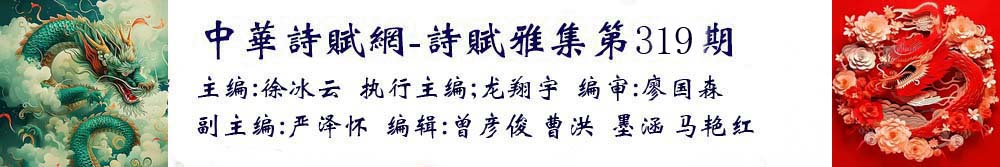 中華詩賦網-詩賦雅集第319期
主编:徐冰云 执行主编;龙翔宇 编审:廖国森
副主编:严泽怀 编辑:曾彦俊 曹洪 墨涵 马艳红